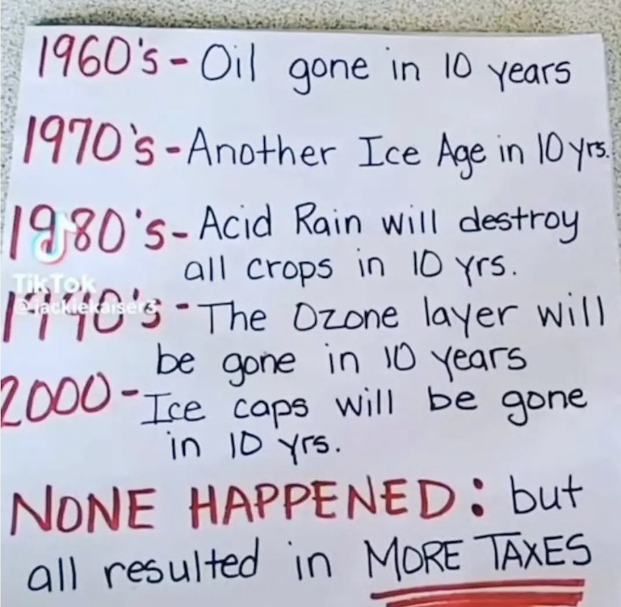 1960's - Oil gone in 10 years
1970's - Another Ice Age in 10 yrs.
1980's - Acid Rain will destroy
all crops in 10 yrs.
TikTok
@jackiekaiser3
1990's - The Ozone layer will
be gone in 10 years
2000 - Ice caps will be gone
in 10 yrs.
NONE HAPPENED: but
all resulted in MORE TAXES